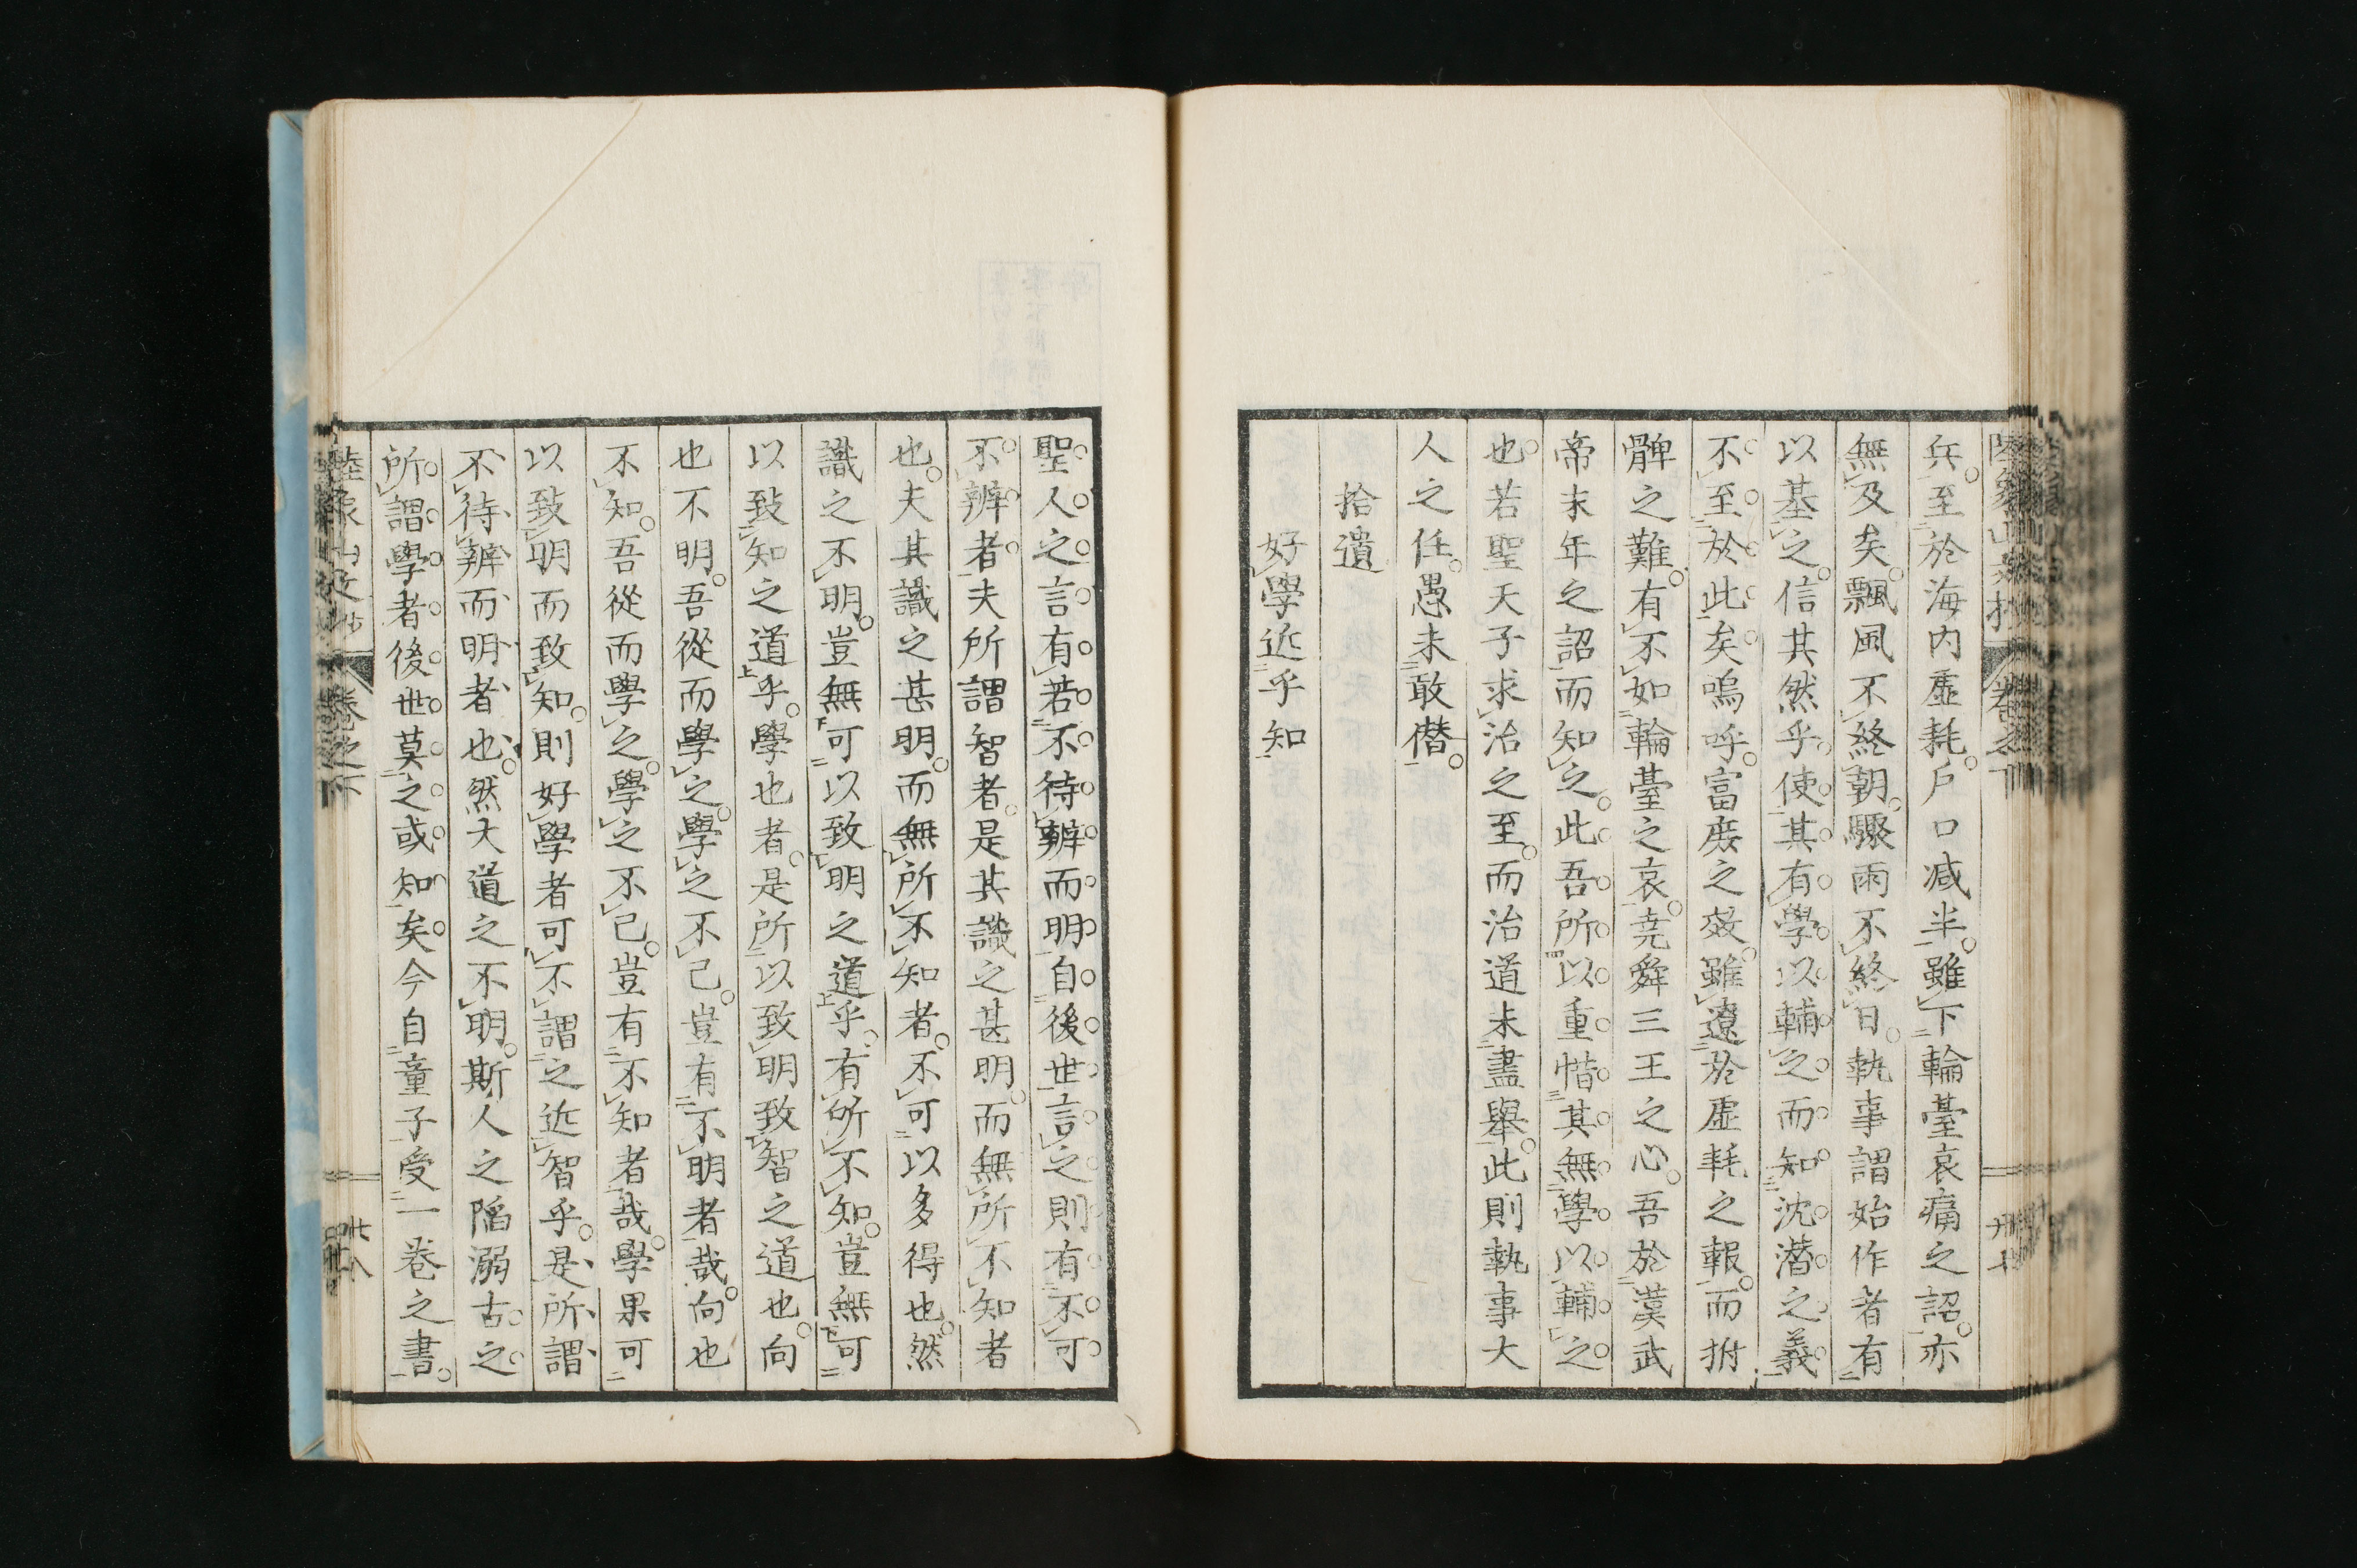 兵。至於海内虛耗。戶口减半。雖下輪臺哀痛之詔。亦
無及矣。飄風不終朝。驟雨不終日。執事謂始作者有
以基之。信其然乎。使其有學以輔之。而知沈潛之義。
不至於此矣。嗚呼。富庶之效。雖遼於虛耗之報。而拊
髀之難。有不如輪臺之哀。堯舜三王之心。吾於漢武
帝末年之詔而知之。此吾所以重惜其無學以輔之
也。若聖天子求治之至。而治道未盡舉。此則執事大
人之任。愚未敢僭。
拾遺
好學近乎知
聖人之言有若不待辨而明。自後世言之則有不可
不辨者。夫所謂智者。是其識之甚明。而無所不知者
也。夫其識之甚明。而無所不知者。不可以多得也。然
識之不明。豈無可以致明之道乎。有所不知。豈無可
以致知之道乎。學也者。是所以致明致智之道也。向
也不明。吾從而學之。學之不已。豈有不明者哉。向也
不知。吾從而學之。學之不已。豈有不知者哉。學果可
以致明而致知。則好學者可不謂之近智乎。是所謂
不待辨而明者也。然大道之不明。斯人之陷溺。古之
所謂學者。後世莫之或知矣。今自童子受一卷之書。
陸象山文抄 卷之下 卅八